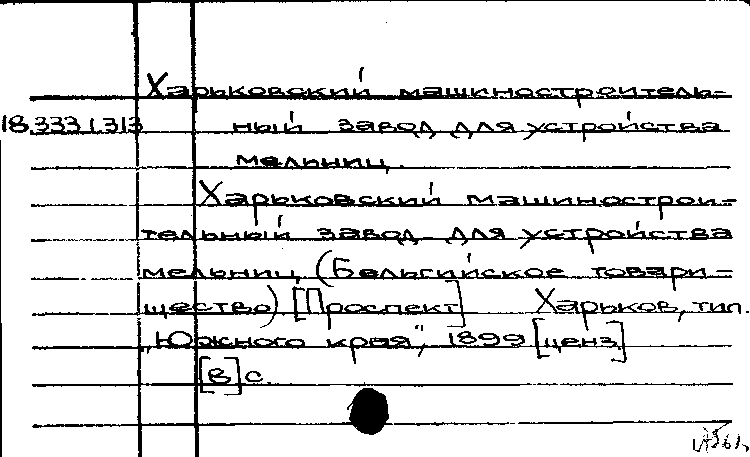 Харьковский машинострoитель-
18.333.1.313 ный завод для устройства
мельниц.
Харьковский машинострои-
тельный завод для устройства
мельниц (Бельгийское товари-
щество) [Проспект] Харьков, тип.
„Южного края", 1899 [ценз.]
[8] с.